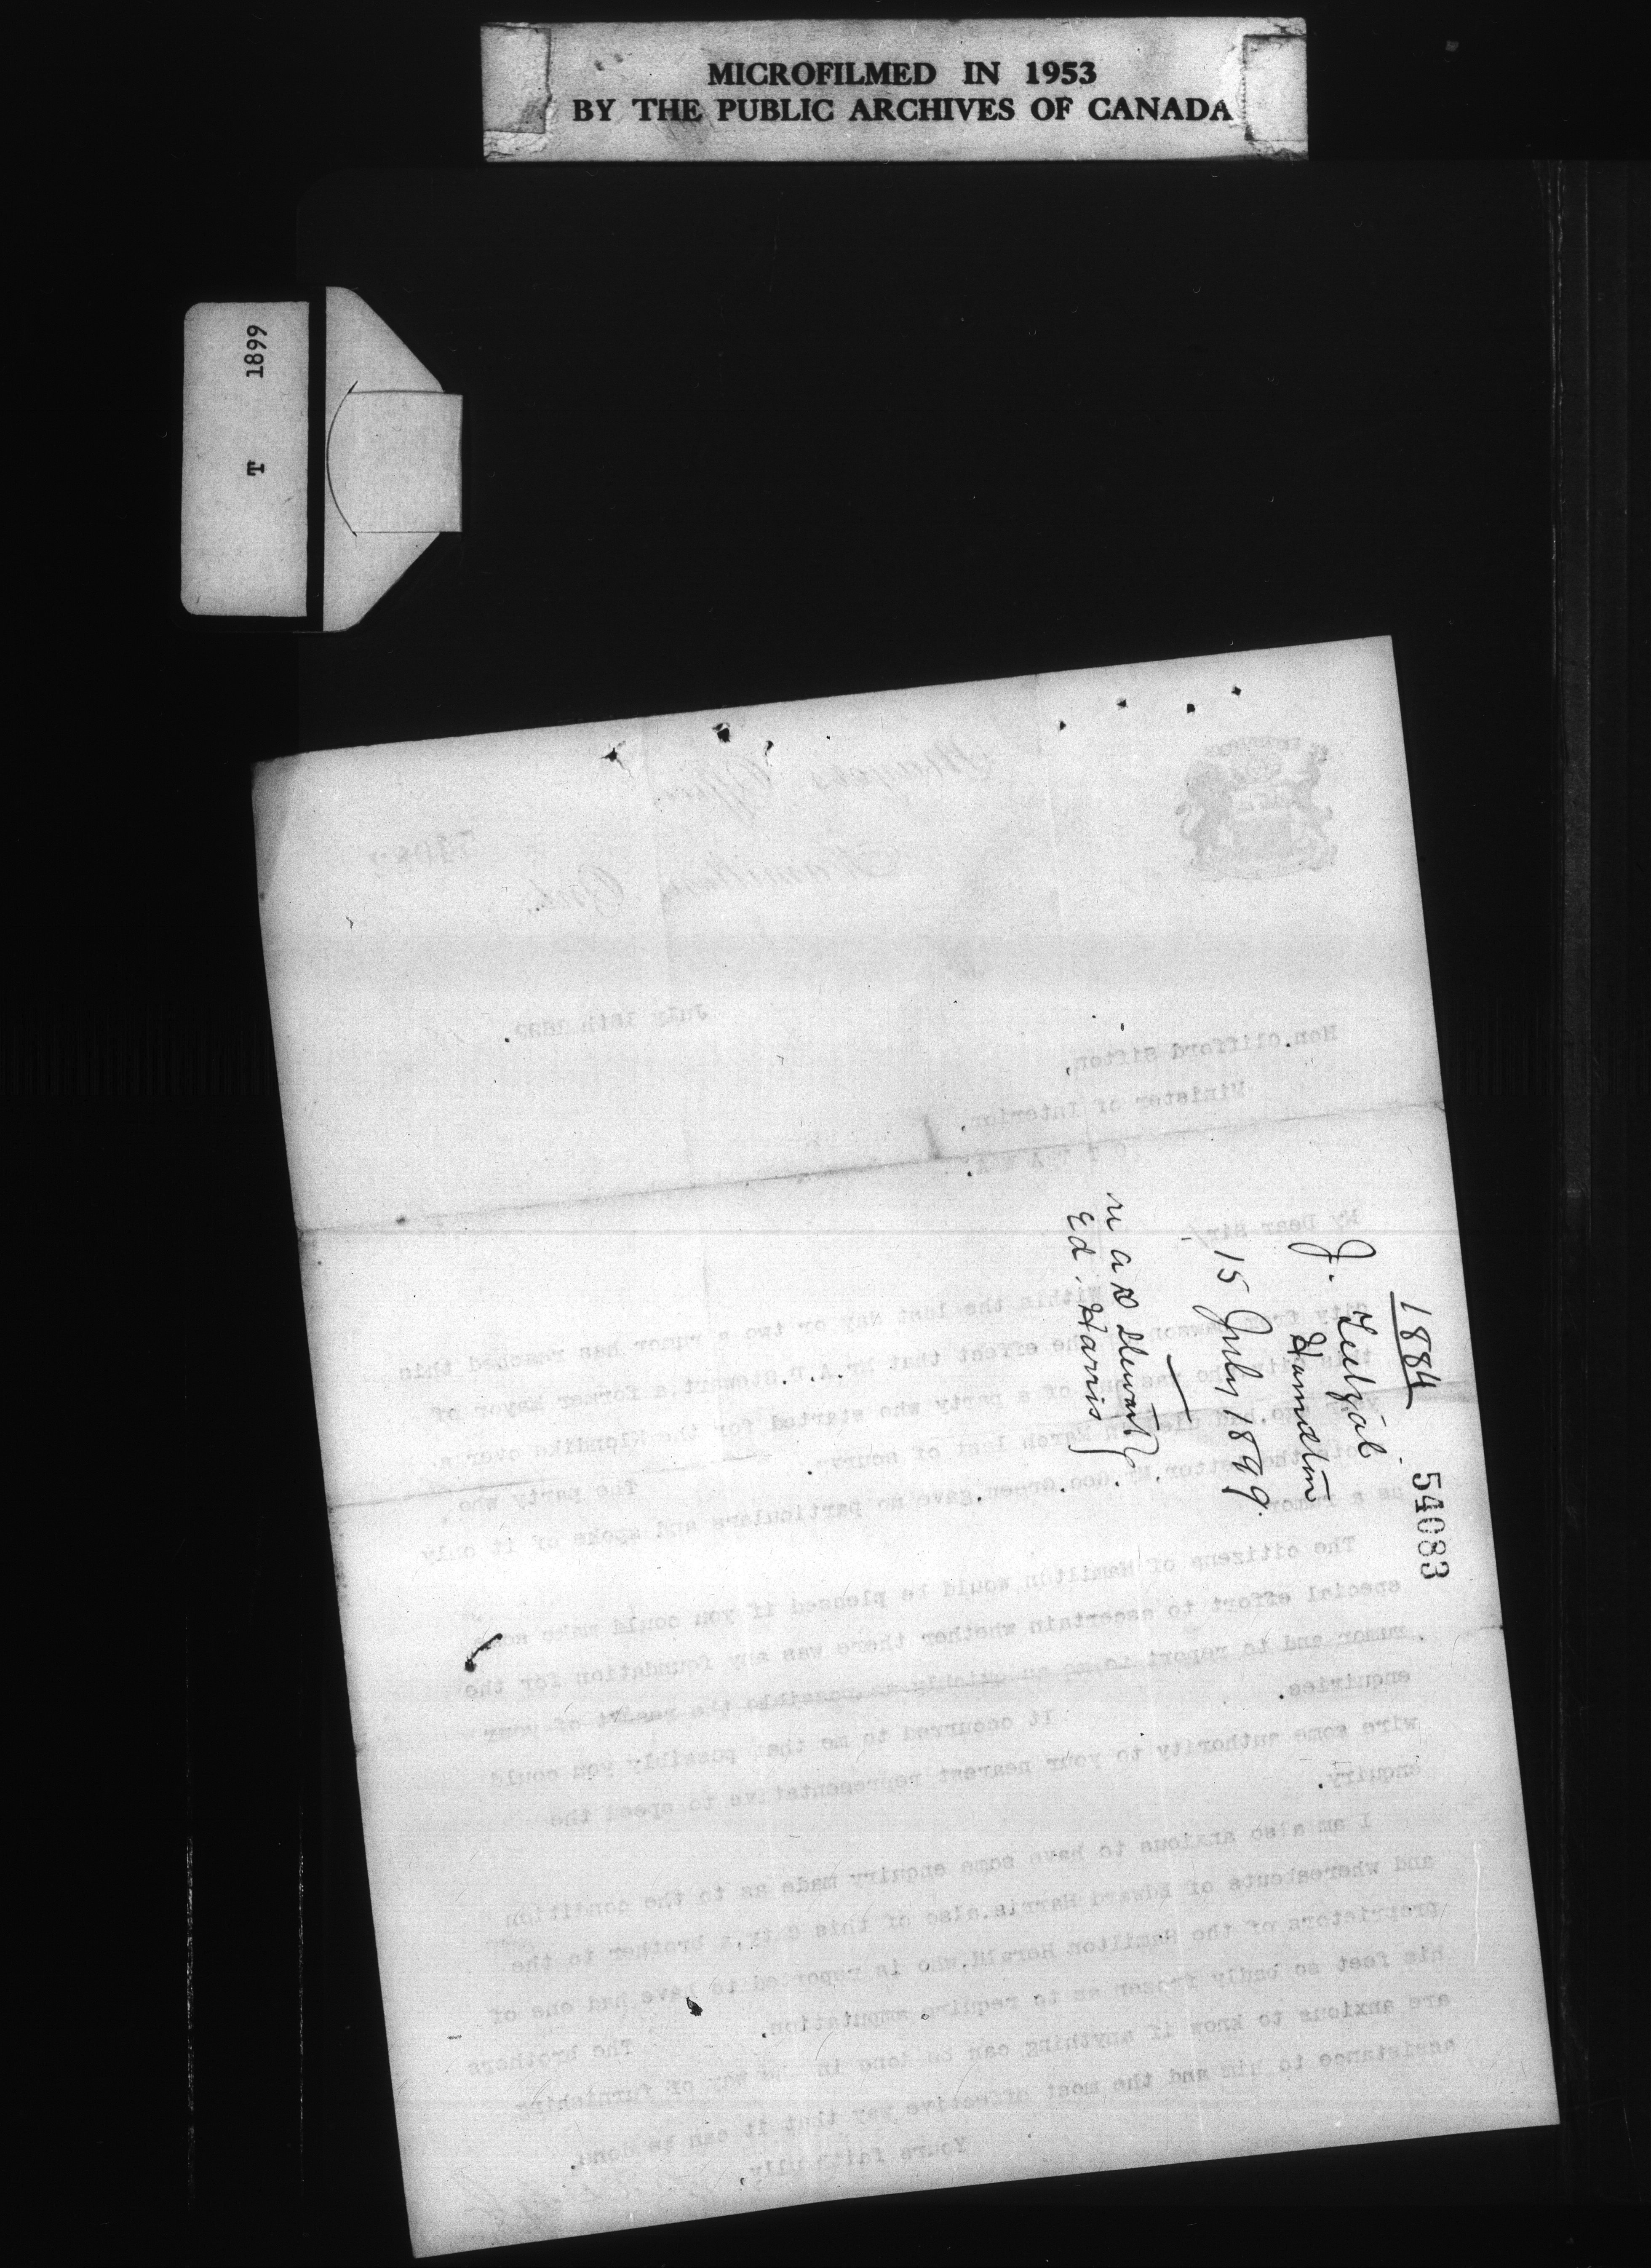 MICROFILMED IN 1953
BY THE PUBLIC ARCHIVES OF CANADA
T 1899
1884
54083
J.
Hamilton
15 July 1899.
re A D Stewart
Ed. Harris
Mayors Office,
Hamilton, Ont.
July 15th 1899.
Hon. Clifford Sifton,
Minister of Interior,
O T T A W A.
My Dear Sir/-
Within the last day or two a rumor has reached this
city from Dawson the effect that Mr. A.D. Stewart, a former Mayor of
this city who was of a party who started for the Klondike over a
year ago, had died in March last of scurvy. The party who
the letter, Mr Geo. Green, gave no particulars and spoke of it only
as a rumor.
The citizens of Hamilton would be pleased if you could make some
special effort to ascertain whether there was any foundation for the
rumor and to report to me as quickly as possible the result of your
enquiries. It occurred to me that possibly you could
wire some authority to your nearest representative to speed the
enquiry.
I am also anxious to have some enquiry made as to the condition
and whereabouts of Edward Harris, also of this City, a brother to the
proprietors of the Hamilton Herald, who is reported to have had one of
his feet so badly frozen as to require amputation. The brothers
are anxious to know if anything can be done in the way of furnishing
assistance to him and the most effective way that it can be done.
Yours faithfully,